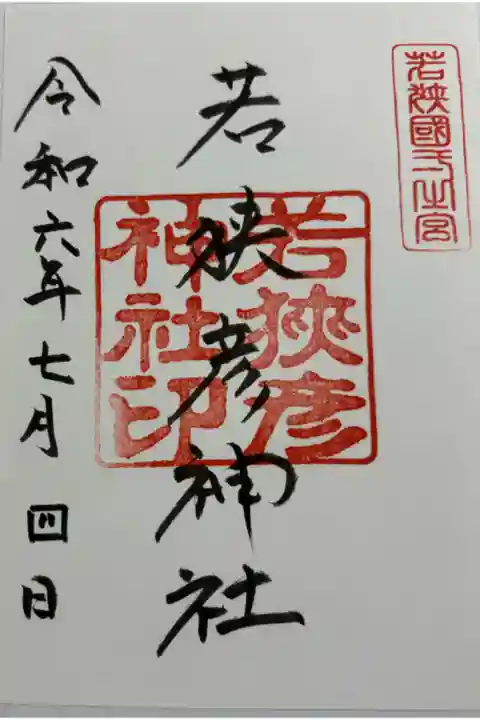 若狭國一之宮
若狭彦神社
若狭彦
神社印
令和六年七月四日